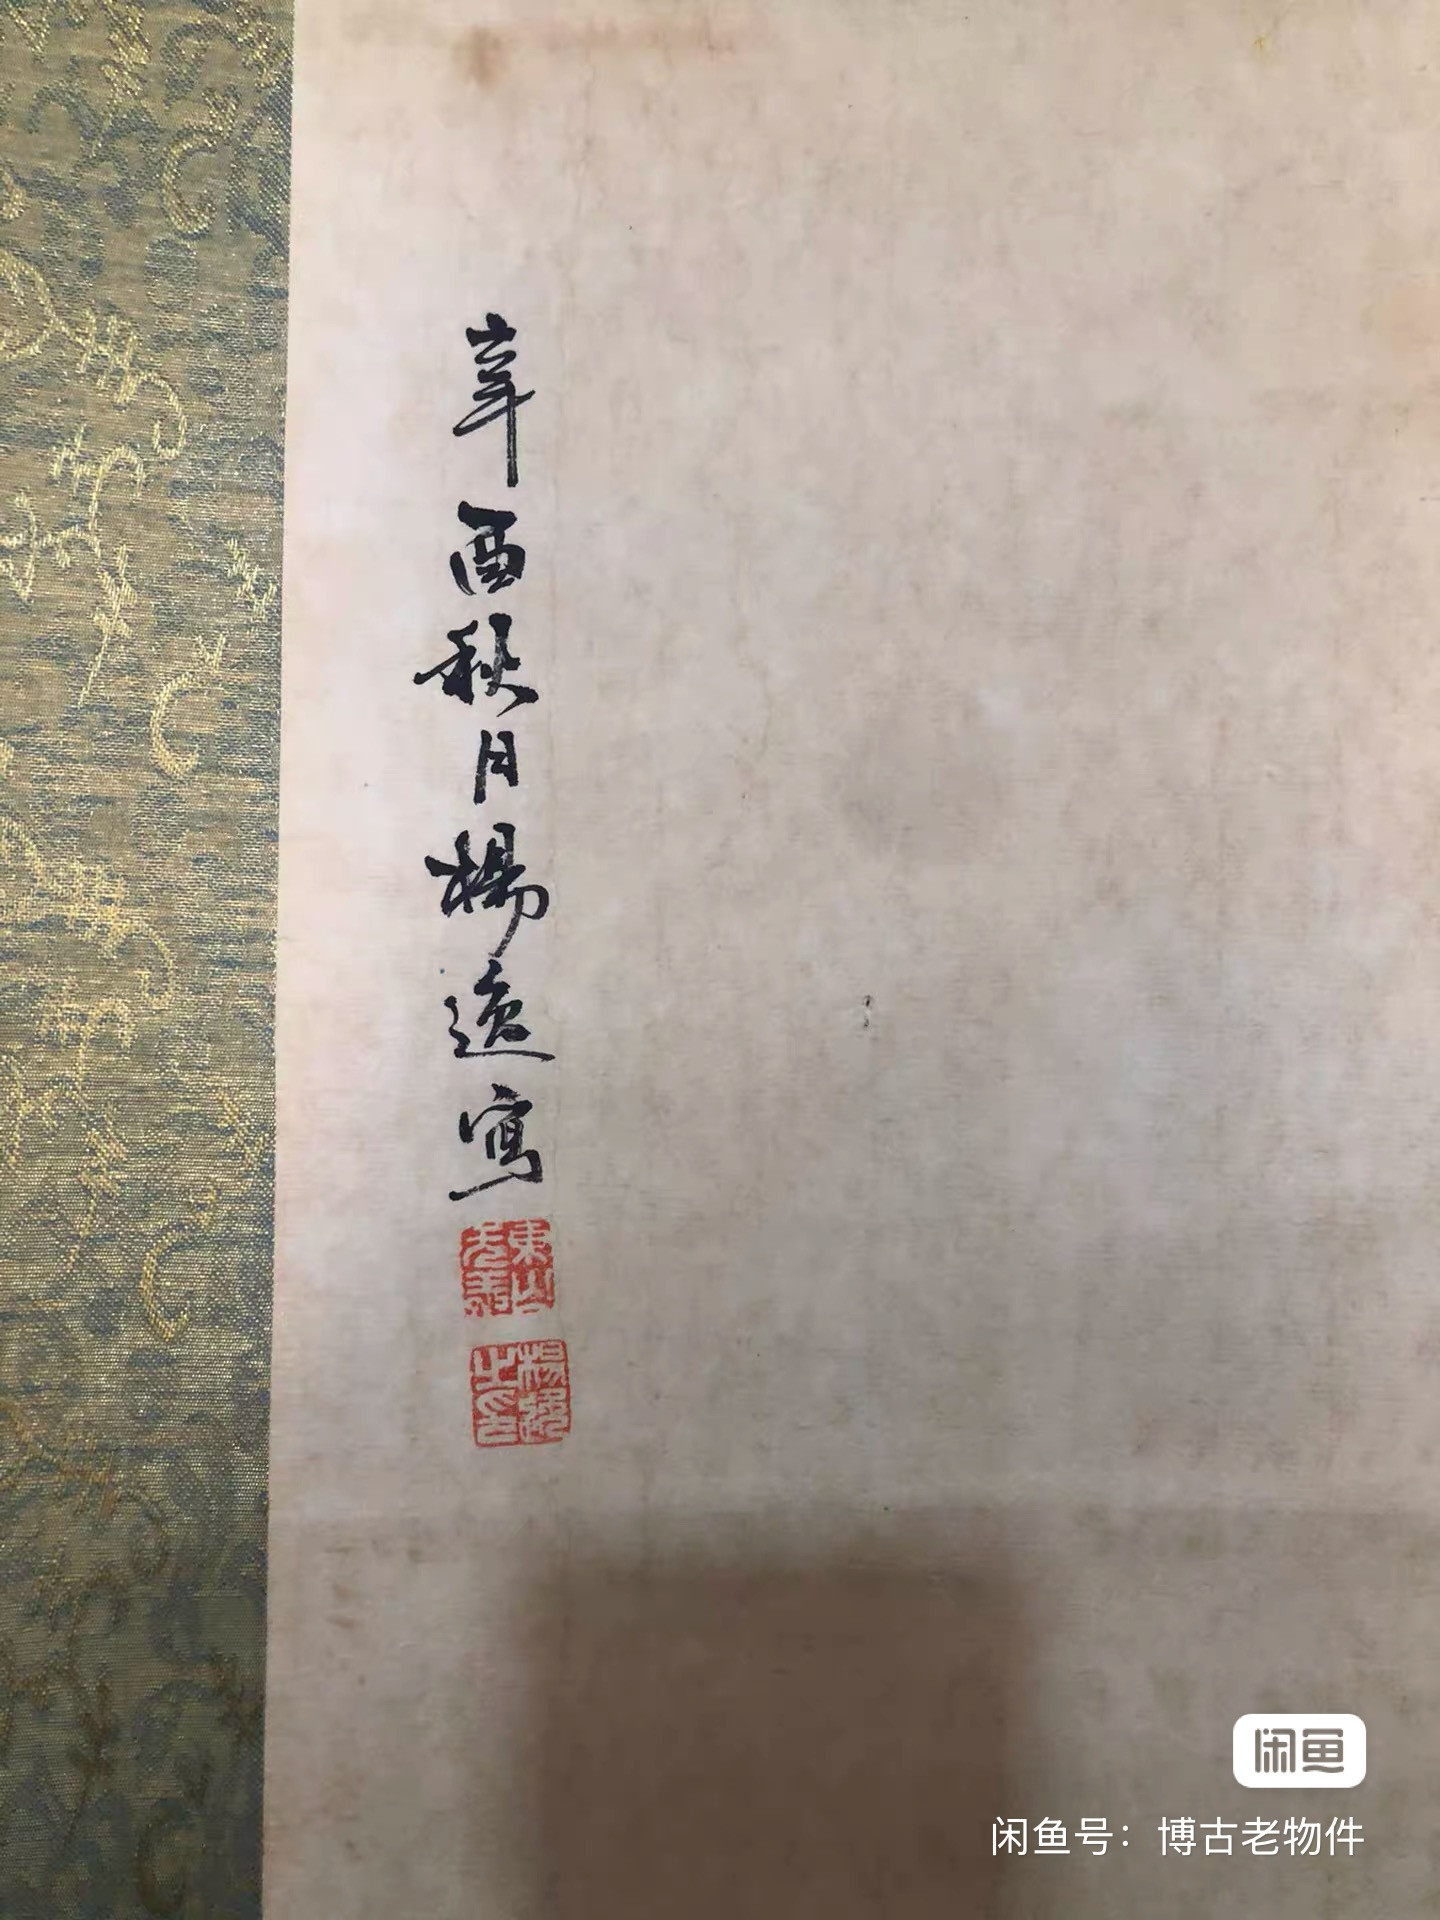 辛酉秋月楊逸寫
東山
楊逸之印
闲鱼
闲鱼号：博古老物件